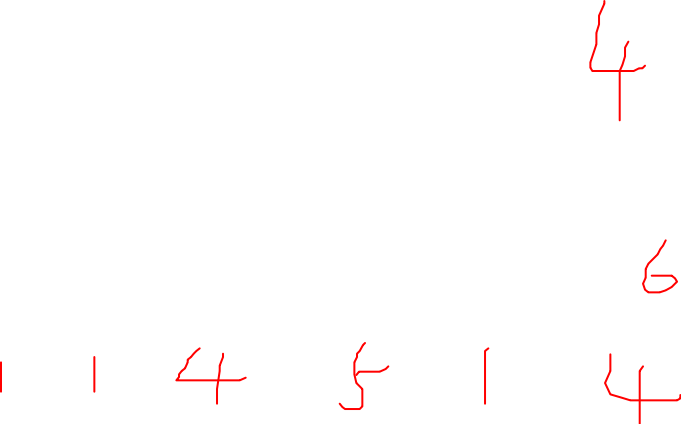 4
6
1 1 4 5 1 4